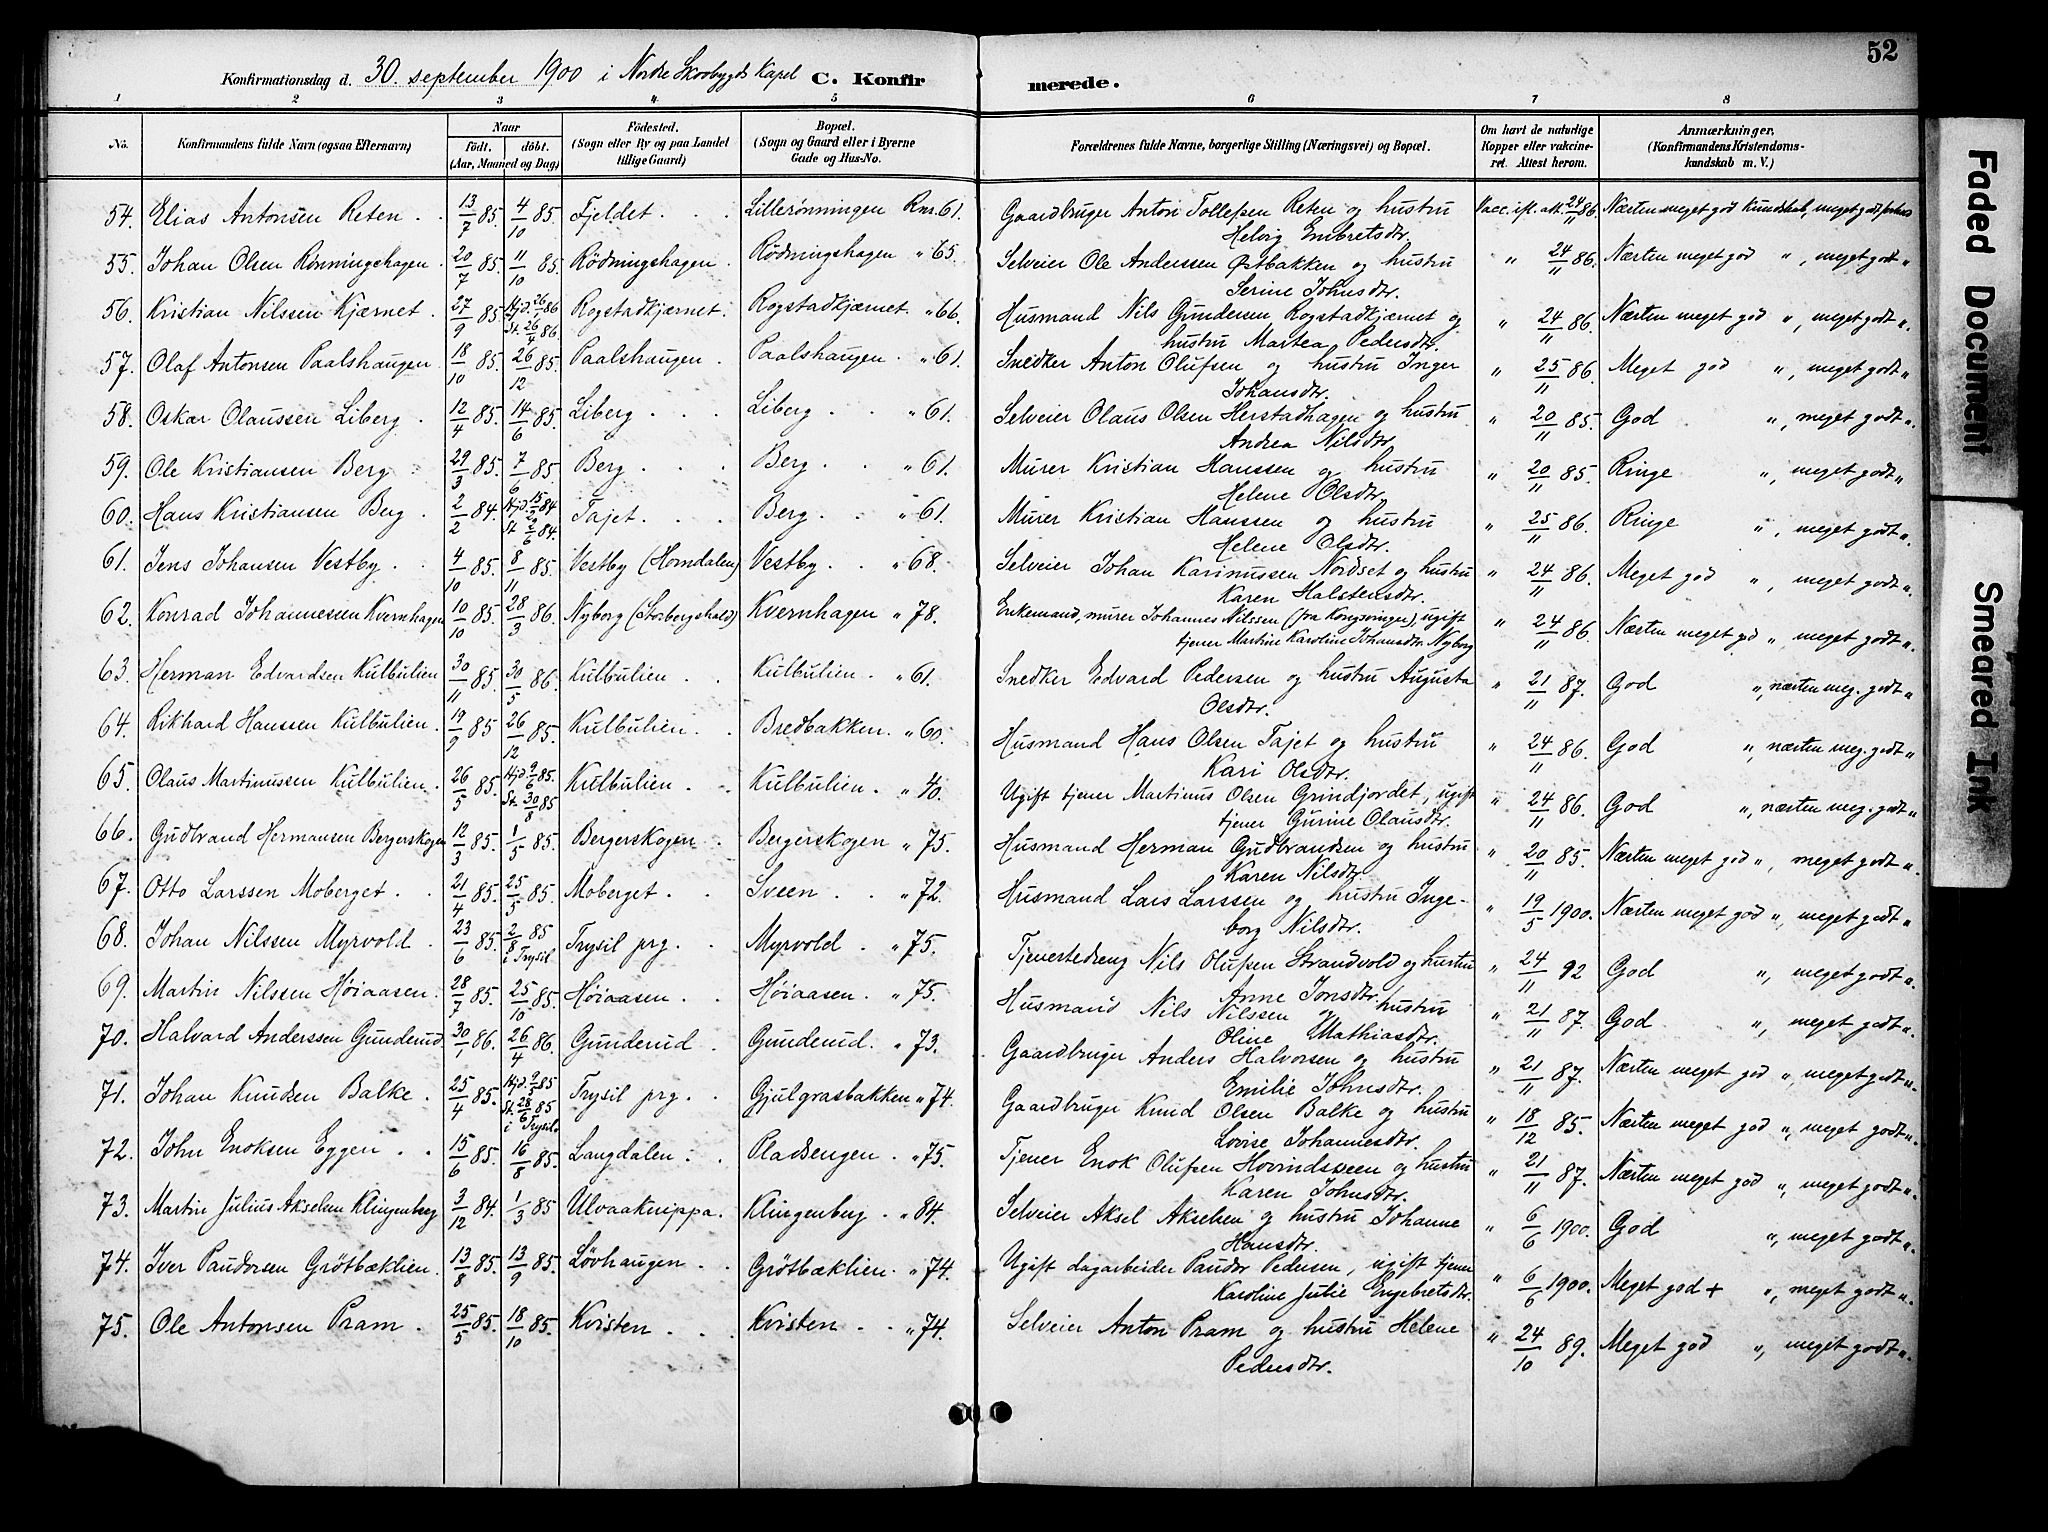 52
Konfirmationsdag d. 30. september 1900 i Nordre Skovbygds Kapel C. Konfirmerede.
1 2 3 4 5 6 7 8
No. Konfirmandens fulde Navn (ogsaa Efternavn) Naar født, døbt. (Aar, Maaned og Dag) Fødested. (Sogn eller By og paa Landet tillige Gaard) Bopæl. (Sogn og Gaard eller i Byerne Gade og Hus-No. Forældrenes fulde Navne, borgerlige Stilling (Næringsvei) og Bopæl. Om havt de naturlige Kopper eller vakcineret. Attest herom. Anmærkninger. (Konfirmandens Kristendomskundskab m. V.)
54. Elias Antonsen Reten . . 13/7 85. 4/10 85. Fjeldet . . Lillerønningen Rnr. 61. Gaardbruger Anton Tollefsen Reten og hustru Helvig Embretsdtr. Vacc. ifl. att. 24/11 86. Næsten meget god Kundskab, meget godt forhold
55. Johan Olsen Rønningshagen . 20/7 85. 11/10 85. Rödningshagen . Rödningshagen " 65. Selveier Ole Anderssen Østbakken og hustru Serine Johnsdtr. " 24/11 86. Næsten meget god ", meget godt "
56. Kristian Nilssen Kjærnet . 27/9 85. Hjd. 26/1 86 St. 26/4 86. Rogstadkjærnet. Rogstadkjærnet. " 66. Husmand Nils Gundersen Rogstadkjærnet og hustru Martea Pedersdtr. " 24/11 86. Næsten meget god ", meget godt ".
57. Olaf Antonsen Paalshaugen 18/10 85. 26/12 85. Paalshaugen . Paalshaugen . " 61. Snedker Anton Olufsen og hustru Inger Johansdtr. " 25/11 86. Meget god ", meget godt "
58. Oskar Olaussen Liberg . 12/4 85. 14/6 85. Liberg . . . Liberg . . " 61. Selveier Olaus Olsen Herstadhagen og hustru Andrea Nilsdtr. " 20/11 85. God ", meget godt ".
59. Ole Kristiansen Berg . 29/3 85. 7/6 85. Berg . . . Berg . . " 61. Murer Kristian Hanssen og hustru Helene Olsdtr. " 20/11 85. Ringe ", meget godt "
60. Hans Kristiansen Berg . 2/2 84. Hjd. 15/2 84 St. 2/6 84. Tajet . . . Berg . . " 61. Murer Kristian Hanssen og hustru Helene Olsdtr. " 25/11 86. Ringe ", meget godt ".
61. Jens Johansen Vestby . . 4/10 85. 8/11 85. Vestby (Horndalen) Vestby . . " 68. Selveier Johan Karinussen Nordset og hustru Karen Halstensdtr. " 24/11 86. Meget god ", meget godt ".
62. Konrad Johannessen Kvernhagen 10/10 85. 28/3 86. Nyborg Kvernhagen " 78. Enkemand, murer Johannes Nilssen (fra Kongsvinger), ugift tjener Martine Karoline Johansdtr. Nyborg " 24/11 86. Næsten meget god ", meget godt ".
63. Herman Edvardsen Kulbulien 30/11 85. 30/5 86. Kulbulien . . Kulbulien . " 61. Snedker Edvard Pedersen og hustru Augusta Olsdtr. " 21/11 87. God ", næsten meg. godt "
64. Rikhard Hanssen Kulbulien . 19/9 85. 26/12 85. Kulbulien . . Bredbakken . " 60. Husmand Hans Olsen Tajet og hustru Kari Olsdtr. " 24/11 86. God ", næsten meg. godt "
65. Olaus Martinussen Kulbulien . 26/5 85. Hjd. 9/6 85. St. 30/8 85 Kulbulien . . Kulbulien . " 40. Ugift tjener Martinus Olsen Grindjordet, ugift tjener Gurine Olausdtr. " 24/11 86. God ", næsten meg. godt "
66. Gudbrand Hermansen Bergerskogen 12/3 85. 1/5 85. Bergerskogen . Bergerskogen " 75. Husmand Herman Gudbrandsen og hustru Karen Nilsdtr. " 20/11 85. Næsten meget god ", meget godt ".
67. Otto Larssen Moberget . . 21/4 85. 25/5 85. Moberget . . Sveen . " 72. Husmand Lars Larssen og hustru Ingeborg Nilsdtr. " 19/5 1900. Næsten meget god ", meget godt "
68. Johan Nilssen Myrvold . 23/6 85. 2/8 85 i Trysil Trysil prg . . Myrvold . " 75. Tjenestedreng Nils Olufsen Strandvold og hustru Anne Jonsdtr. " 24/11 92 God ", meget godt ".
69. Martin Nilssen Høiaasen . 28/7 85. 25/10 85. Høiaasen . . Høiaasen . " 75. Husmand Nils Nilssen og hustru Oline Mathiasdtr. " 21/11 87. God ", meget godt "
70. Halvard Anderssen Gunderud 30/1 86. 26/4 86. Gunderud . Gunderud . " 73. Gaardbruger Anders Halvorsen og hustru Emilie Johnsdtr. " 21/11 87. Næsten meget god ", meget godt ".
71. Johan Knudsen Balke . 25/4 85. Hjd. 9/5 85 St. 28/6 85 i Trysil. Trysil prg . . Gjulgrasbakken " 74. Gaardbruger Knud Olsen Balke og hustru Lovise Johannesdtr. " 18/12 85. Næsten meget god ", meget godt ".
72. John Enoksen Eggen . . 15/6 85. 16/8 85. Langdalen . . Pladsengen . " 75. Tjener Enok Olufsen Hovindsveen og hustru Karen Johnsdtr. " 21/11 87. Næsten meget god ", meget godt ".
73. Martin Julius Akselsen Klingenberg 3/12 84. 1/3 85 Ulvaakerippa . Klingenberg . " 84. Selveier Aksel Akselsen og hustru Johanne Hansdtr. " 6/6 1900. God ", meget godt ".
74. Iver Paudorsen Grötbæklien . 13/8 85. 13/9 85. Løvhaugen . . Grötbæklien . " 74. Ugift dagarbeider Paudor Pedersen, ugift tjener Karoline Julie Engebretsdtr. " 6/6 1900. Meget god + ", meget godt ".
75. Ole Antonsen Pram . 25/5 85. 18/10 85. Kvisten . . Kvisten . . " 74. Selveier Anton Pram og hustru Helene Pedersdtr. " 24/10 89. Meget god ", meget godt ".
Faded Document
Smeared Ink